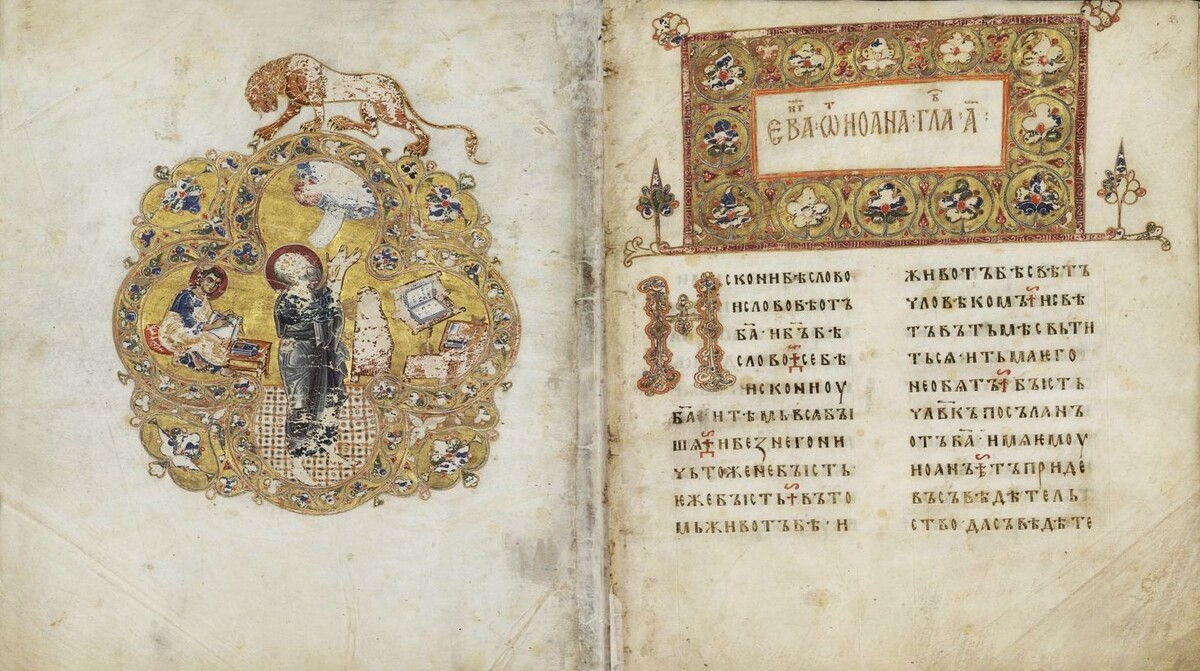 ЕВАНГ · ѠТ ИОАНА · ГЛАВ · А҃ :
ИСКОНИ БѢ СЛОВО
И СЛОВО БѢ ОТЪ
Б҃А · И Б҃Ъ БѢ
СЛОВО · СЕ БѢ
ИСКОНИ ОУ
Б҃А · И ТѢМЬ ВСѦ БЫ
ШѦ · И БЕЗ НЕГО НИ
ЧЬТОЖЕ НЕ БЪІСТЬ
ѤЖЕ БЪІСТЬ · ВЪ ТО
МЬ ЖИВОТЪ БѢ · И
ЖИВОТЪ БѢ СВѢТЪ
ЧЛОВѢКОМЪ · И СВѢ
ТЪ ВЪ ТЬМѢ СВЬТИ
ТЬСѦ · И ТЬМА ЕГО
НЕ ОБѦТЪ · БЪІСТЬ
ЧЛ҃ВКЪ ПОСЪЛАНЪ
ОТЪ Б҃А · ИМѦ ѤМОУ
ИОАНЪ · ТЪ ПРИДЕ
ВЪ СЪВѢДѢТЕЛЬ
СТВО · ДА СЪВѢДѢТЕ